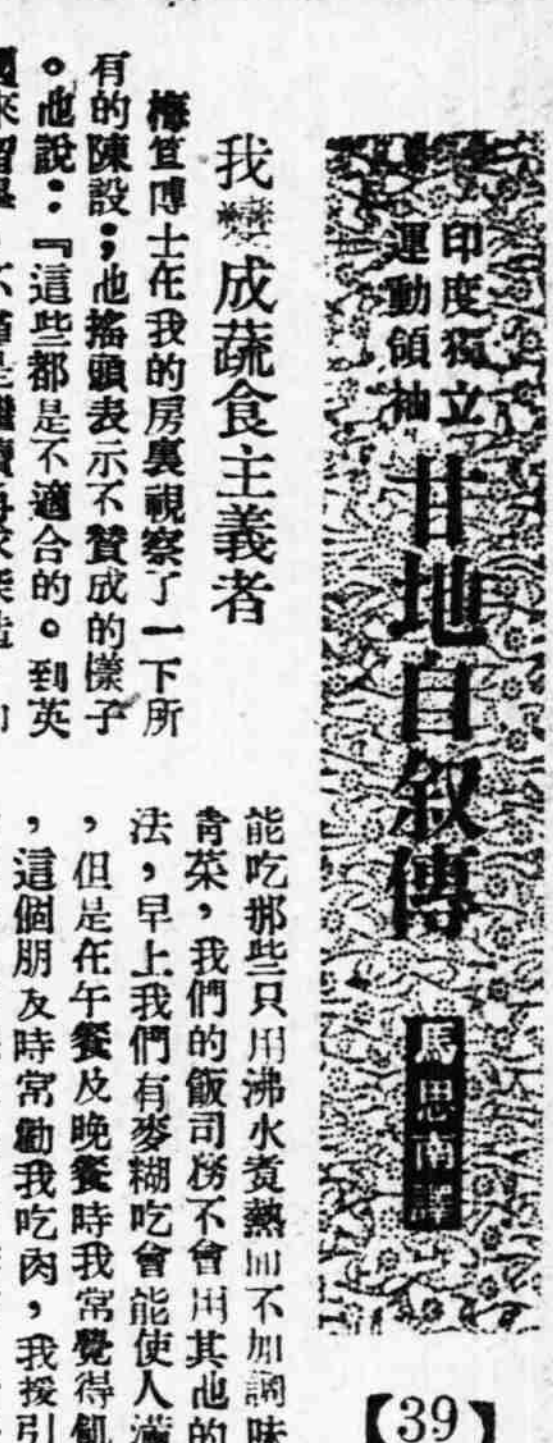 印度獨立
運動領袖
甘地自叙傳
馬思南譯
【39】
我變成蔬食主義者
梅笪博士在我的房裏視察了一下所
有的陳設；他搖頭表示不贊成的樣子
。他說：『這些都是不適合的。到英
國來留學，不僅是繼續
能吃那些只用沸水煑熱而不加調味
青菜，我們的飯司務不會用其他的
法，早上我們有麥糊吃會能使人滿
，但是在午餐及晚餐時我常覺得飢
，這個朋友時常勸我吃肉，我援引